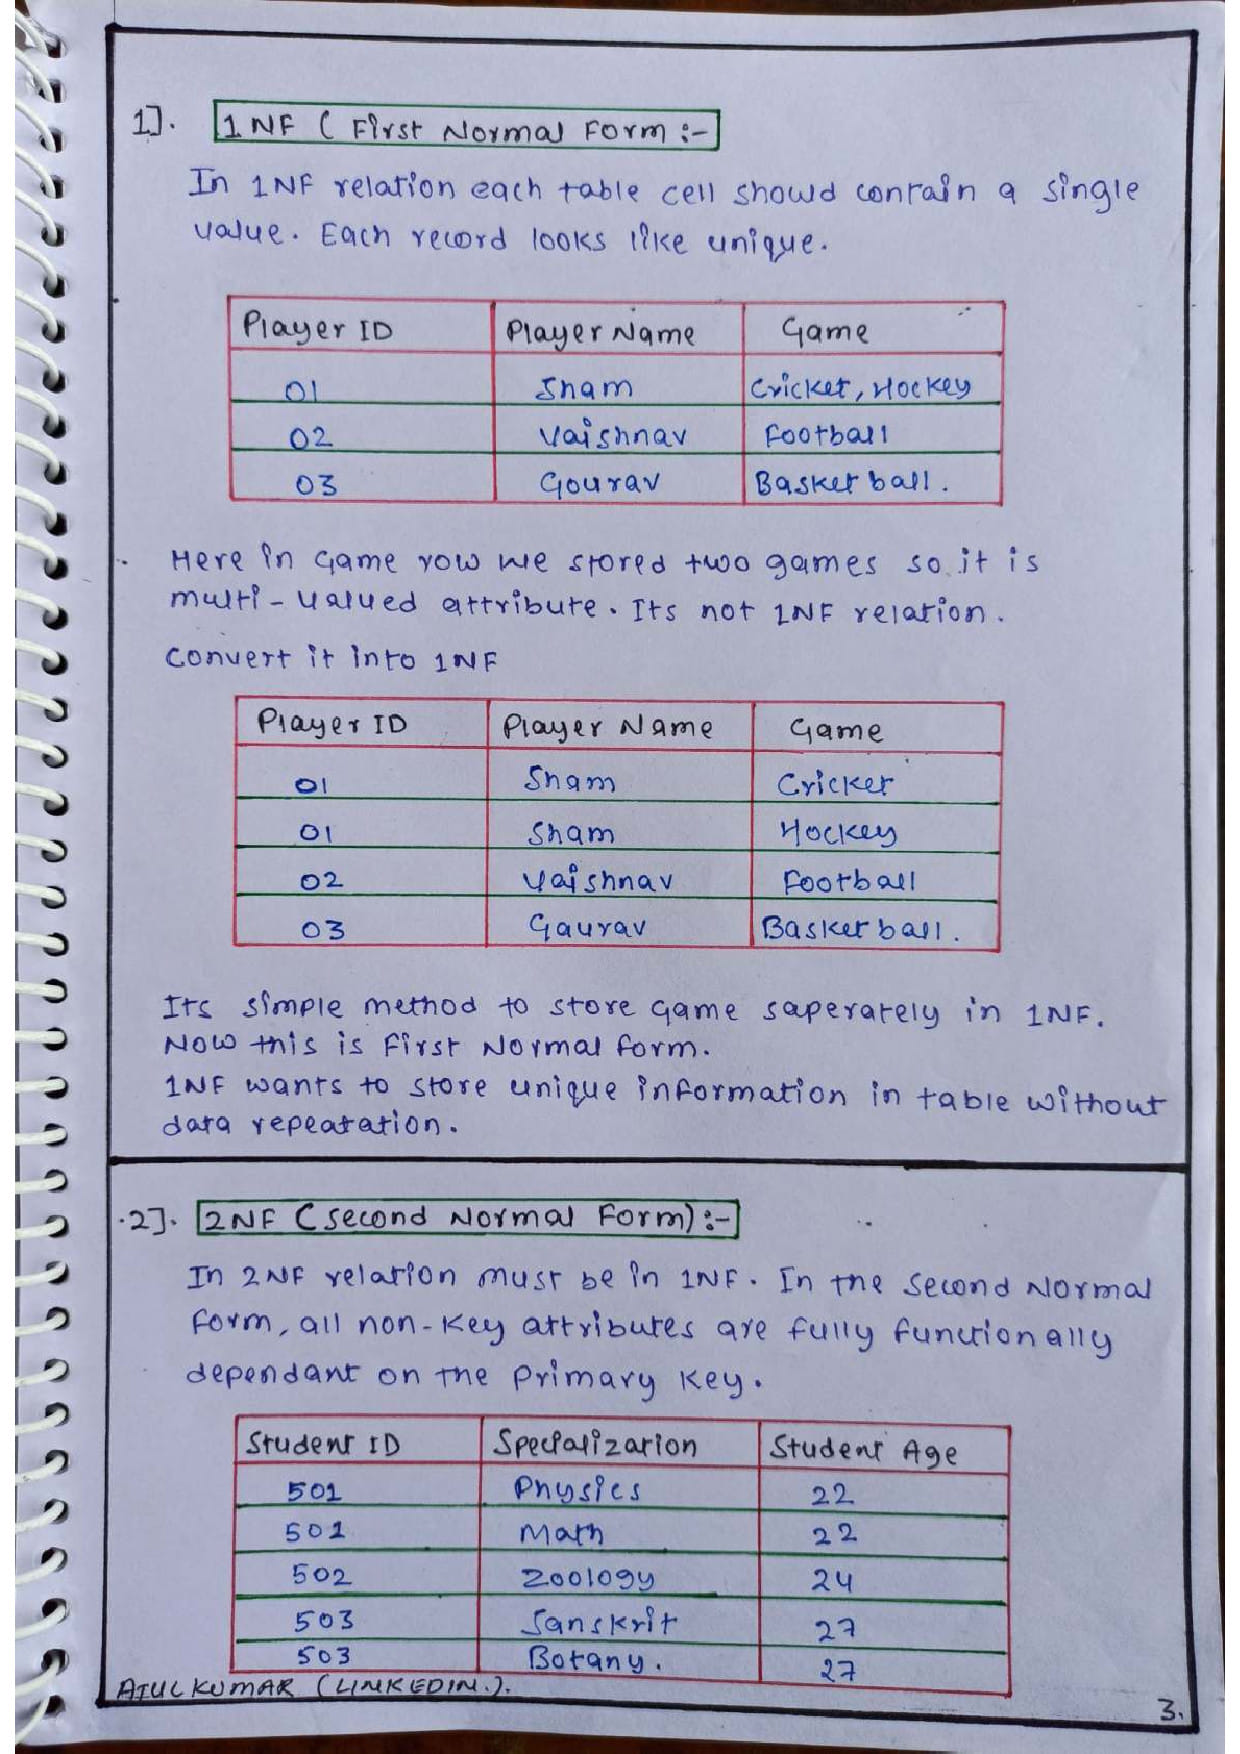 1]. 1NF ( First Normal Form :-
In 1NF relation each table cell should contain a single
value. Each record looks like unique.
Player ID Player Name Game
01 Sham Cricket, Hockey
02 Vaishnav Football
03 Gourav Basket ball.
Here in Game row we stored two games so it is
multi-valued attribute. Its not 1NF relation.
Convert it into 1NF
Player ID Player Name Game
01 Sham Cricket
01 Sham Hockey
02 Vaishnav Football
03 Gaurav Basket ball.
Its simple method to store game saperately in 1NF.
Now this is First Normal form.
1NF wants to store unique information in table without
data repeatation.
2]. 2NF (Second Normal Form) :-
In 2NF relation must be in 1NF. In the Second Normal
form, all non-key attributes are fully functionally
dependant on the primary key.
Student ID Specialization Student Age
501 Physics 22
501 Math 22
502 Zoology 24
503 Sanskrit 27
503 Botany. 27
ATUL KUMAR (LINKEDIN.).
3.